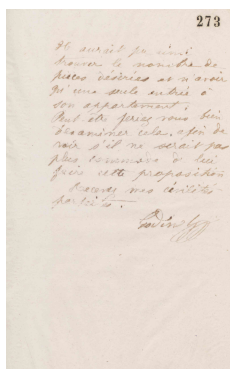 273
Il aurait pu ainsi
trouver le nombre de
pièces désirées et n'avoir
qu'une seule entrée à
son appartement.
Peut être feriez vous bien
d'examiner cela, afin de
voir s'il ne serait pas
plus commode de lui
faire cette proposition
Recevez mes civilités
Godin